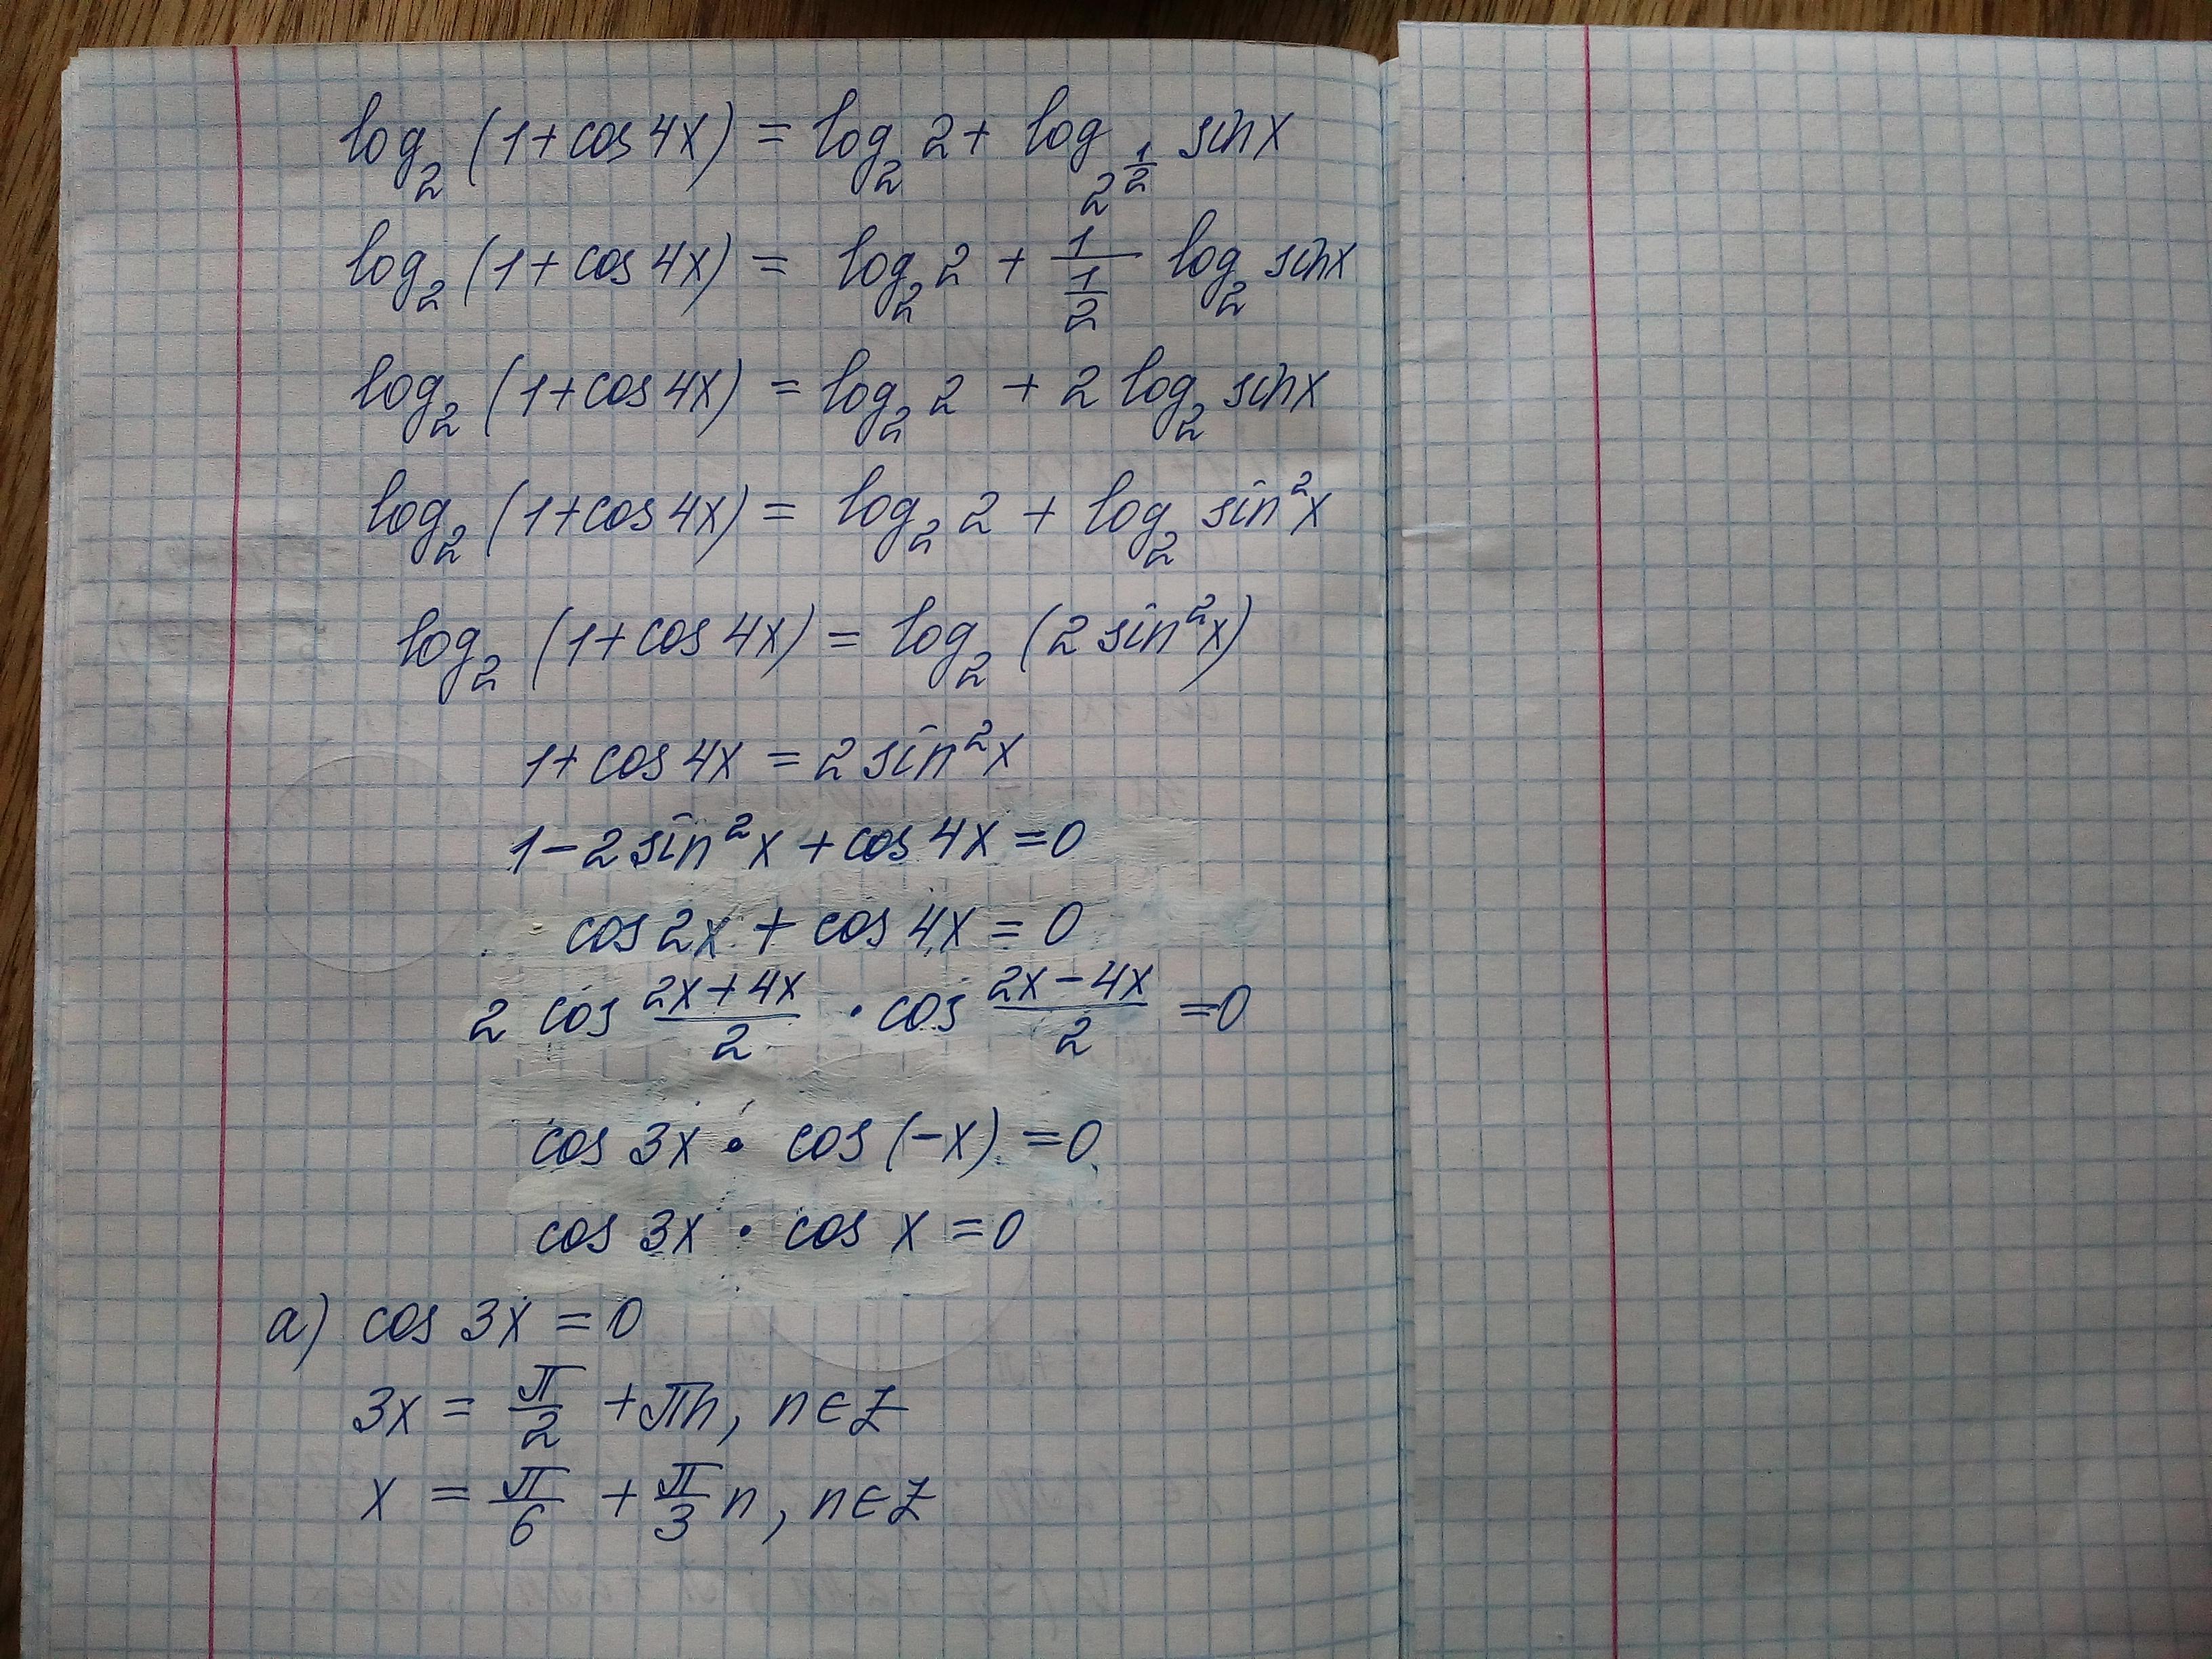 log₂ (1+cos 4x) = log₂ 2 + log_{2^{1/2}} sin x
log₂ (1+cos 4x) = log₂ 2 + \frac{1}{\frac{1}{2}} log₂ sin x
log₂ (1+cos 4x) = log₂ 2 + 2 log₂ sin x
log₂ (1+cos 4x) = log₂ 2 + log₂ sin²x
log₂ (1+cos 4x) = log₂ (2 sin²x)
1+cos 4x = 2 sin²x
1-2 sin²x + cos 4x = 0
cos 2x + cos 4x = 0
2 cos \frac{2x+4x}{2} · cos \frac{2x-4x}{2} = 0
cos 3x · cos (-x) = 0
cos 3x · cos x = 0
а) cos 3x = 0
3x = \frac{π}{2} + πn, n∈Z
x = \frac{π}{6} + \frac{π}{3} n, n∈Z